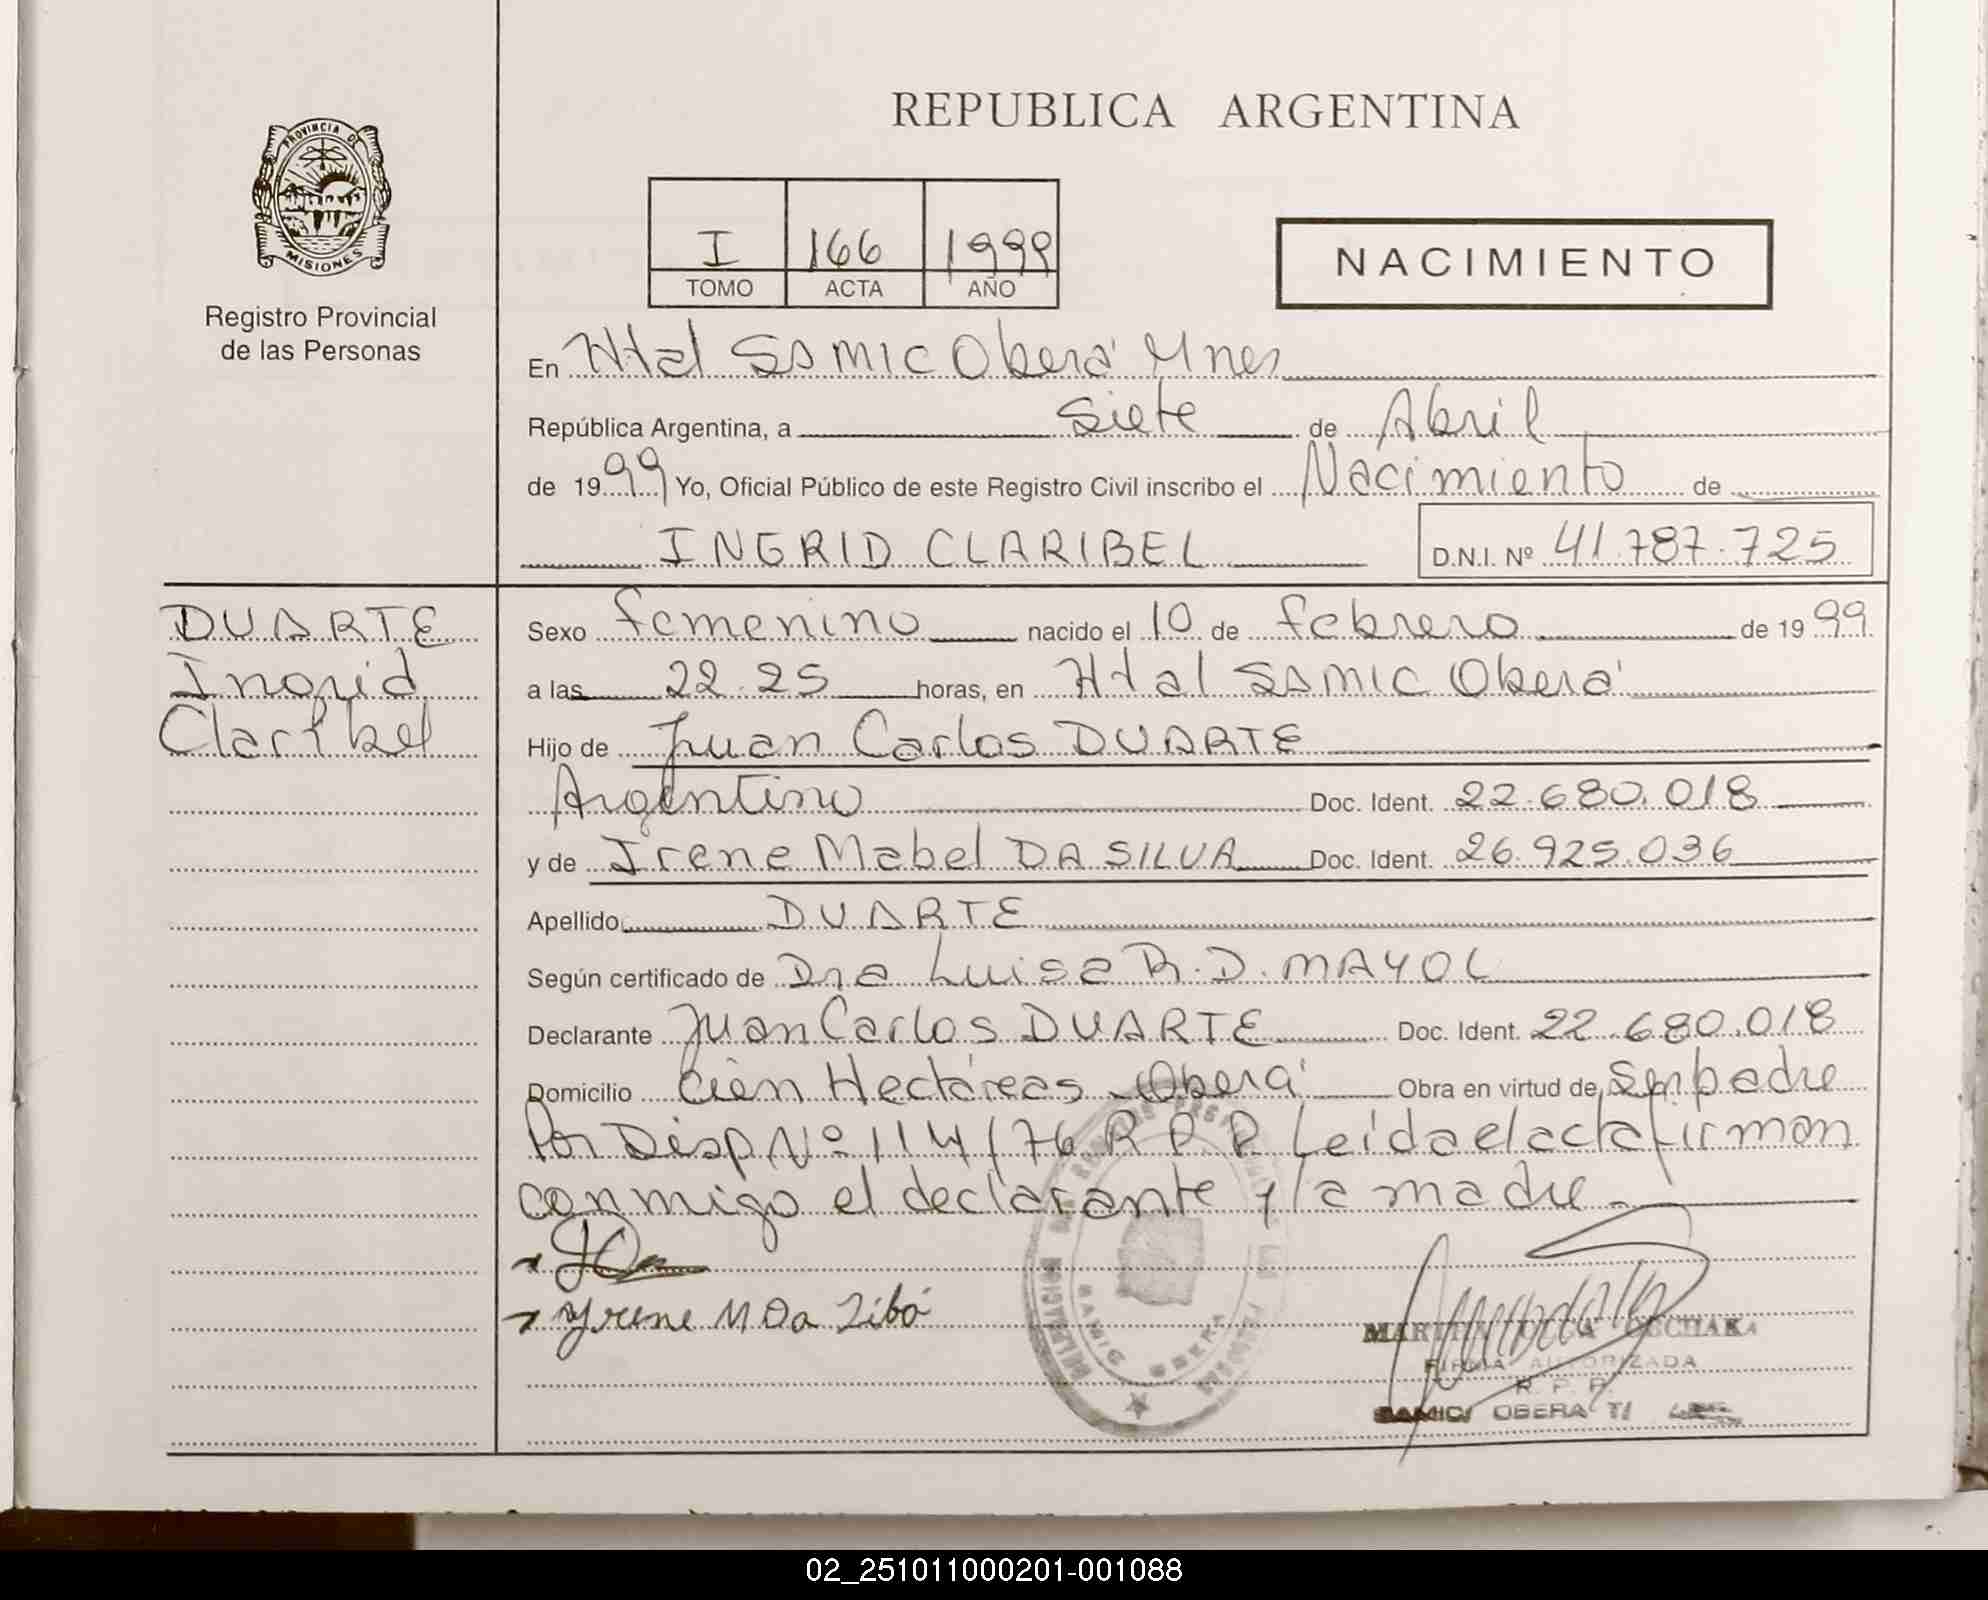 REPUBLICA ARGENTINA
PROVINCIA DE
MISIONES
Registro Provincial
de las Personas
I 166 1999
TOMO ACTA AÑO
NACIMIENTO
En Htal SAMIC Oberá Mnes
República Argentina, a siete de Abril
de 1999 Yo, Oficial Público de este Registro Civil inscribo el Nacimiento de
INGRID CLARIBEL
D.N.I. Nº 41.787.725
DUARTE
Ingrid
Claribel
Sexo femenino nacido el 10 de febrero de 1999
a las 22.25 horas, en Htal SAMIC Oberá
Hijo de Juan Carlos DUARTE
Argentino Doc. Ident. 22.680.018
y de Irene Mabel DA SILVA Doc. Ident. 26.925.036
Apellido DUARTE
Según certificado de Dra Luisa R. D. MAYOL
Declarante Juan Carlos DUARTE Doc. Ident. 22.680.018
Domicilio Cien Hectáreas - Oberá Obra en virtud de Ser padre
Por Disp Nº 114/76 R P P Leida el acta firman
conmigo el declarante y la madre
Yrene M Da
SAMIC OBERA
FIRMA AUTORIZADA
R. P. P.
SAMIC/ OBERA
02_251011000201-001088